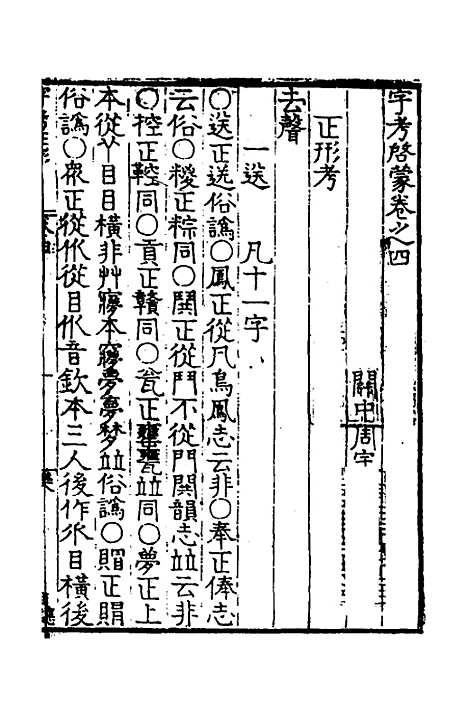 字考啓蒙卷之四
關中周宇
正形考
去聲
一送 凡十一字
○送正送俗譌○鳳正從凡鳥鳯志云非○奉正俸志
云俗○糉正粽同○鬨正從鬥不從門閧韻志並云非
○控正鞚同○貢正贛同○瓮正罋甕並同○夢正上
本從丫目目橫非艸寢本㝱夢梦並俗譌○賵正賏
俗譌○衆正從㐺從目㐺音欽本三人後作血目橫後